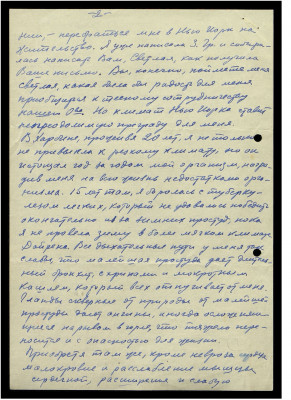 - 2 -
нии, - перебраться мне в Нью Иорк на
жительство. Я уже написала З. Гр. и собира-
лась написать Вам, Светлая, как получила
Ваше письмо. Вы, конечно, поймете меня
Светлая, какая была бы радость для меня
приобщиться к тесному сотрудничеству
нашего О-ва. Но климат Нью Иорка ставит
непреодолимую преграду для меня.
В Харбине, прожив 20 лет, я не только
не привыкла к резкому климату, но он
истощал год за годом мой организм, награ-
див меня на всю жизнь недостатками орга-
низма. 15 лет там, я боролась с туберку-
лезом легких, который не удавалось победить
окончательно из-за зимних простуд, пока
я не провела зиму в более мягком климате
Дайрена. Все дыхательные пути у меня так
слабы, что малейшая простуда дает длитель-
ный бронхит, с хрипами и мокротным
кашлем, который всех отпугивает от меня.
Гланды скверные от природы от малейшей
простуды дают ангины, иногда осложняю-
щиеся нарывом в горле, что тяжело пере-
носится и с опасностью для жизни.
Приобрела там же, кроме невроза сердца,
малокровие и расслабление мышцы
сердечной, расширение и слабую